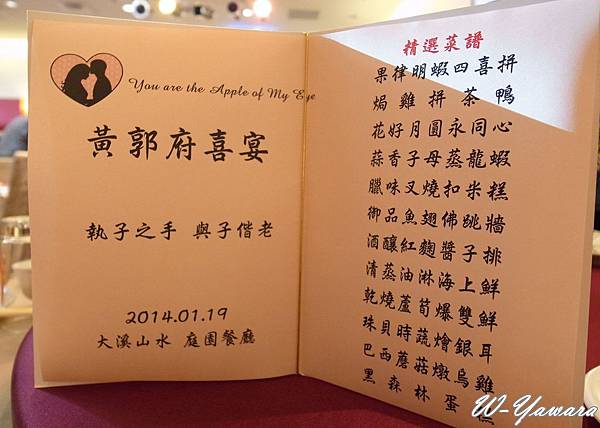 You are the Apple of My Eye
黃郭府喜宴
執子之手 與子偕老
2014.01.19
大溪山水 庭園餐廳
精選菜譜
果律明蝦四喜拼
焗雞拼茶鴨
花好月圓永同心
蒜香子母蒸龍蝦
臘味叉燒扣米糕
御品魚翅佛跳牆
酒釀紅麴醬子排
清蒸油淋海上鮮
乾燒蘆筍爆雙鮮
珠貝時蔬燴銀耳
巴西蘑菇燉烏雞
黑森林蛋
W-Yawara